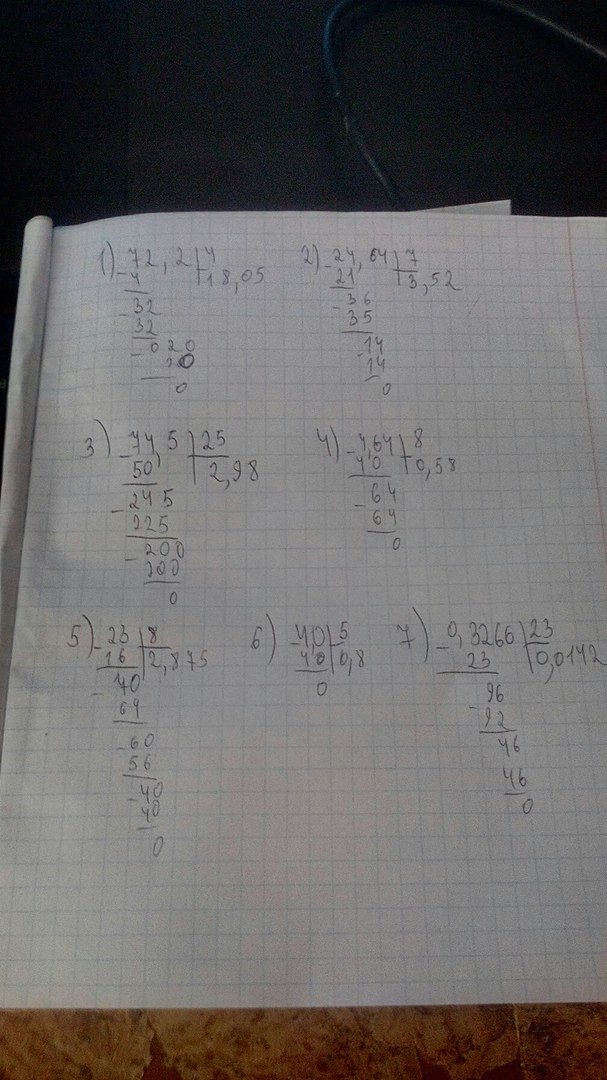 1) 72,2 | 4
- 4 18,05
- 32
32
- 020
20
0
2) - 24,64 | 7
21 3,52
- 36
35
- 14
14
0
3) - 74,5 | 25
50 2,98
- 245
225
- 200
200
0
4) - 4,64 | 8
40 0,58
- 64
64
0
5) - 23 | 8
16 2,875
- 70
64
- 60
56
- 40
40
0
6) - 4,0 | 5
40 0,8
0
7) - 0,3266 | 23
23 0,0142
- 96
92
46
46
0